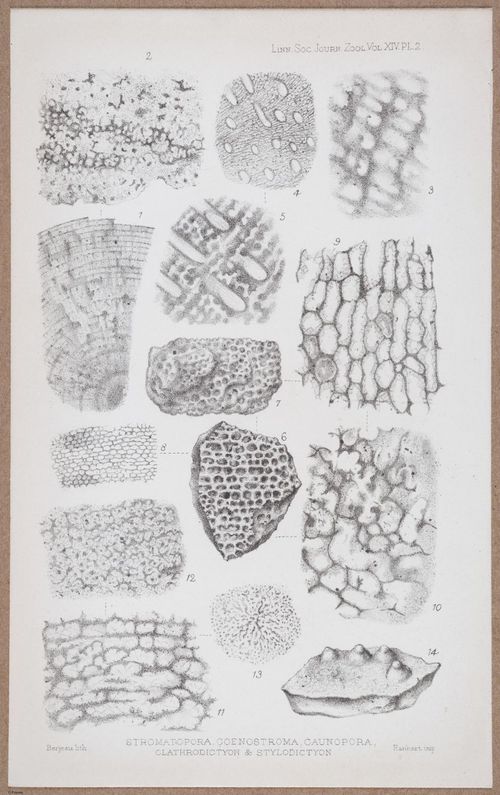 LINN. SOC. JOURN. ZOOL. VOL. XIV. PL. 2.
2
4
3
1
5
9
7
8
6
12
10
13
14
11
Berjeau lith.
STROMATOPORA, COENOSTROMA, CAUNOPORA,
CLATHRODICTYON & STYLODICTYON
Hanhart imp.